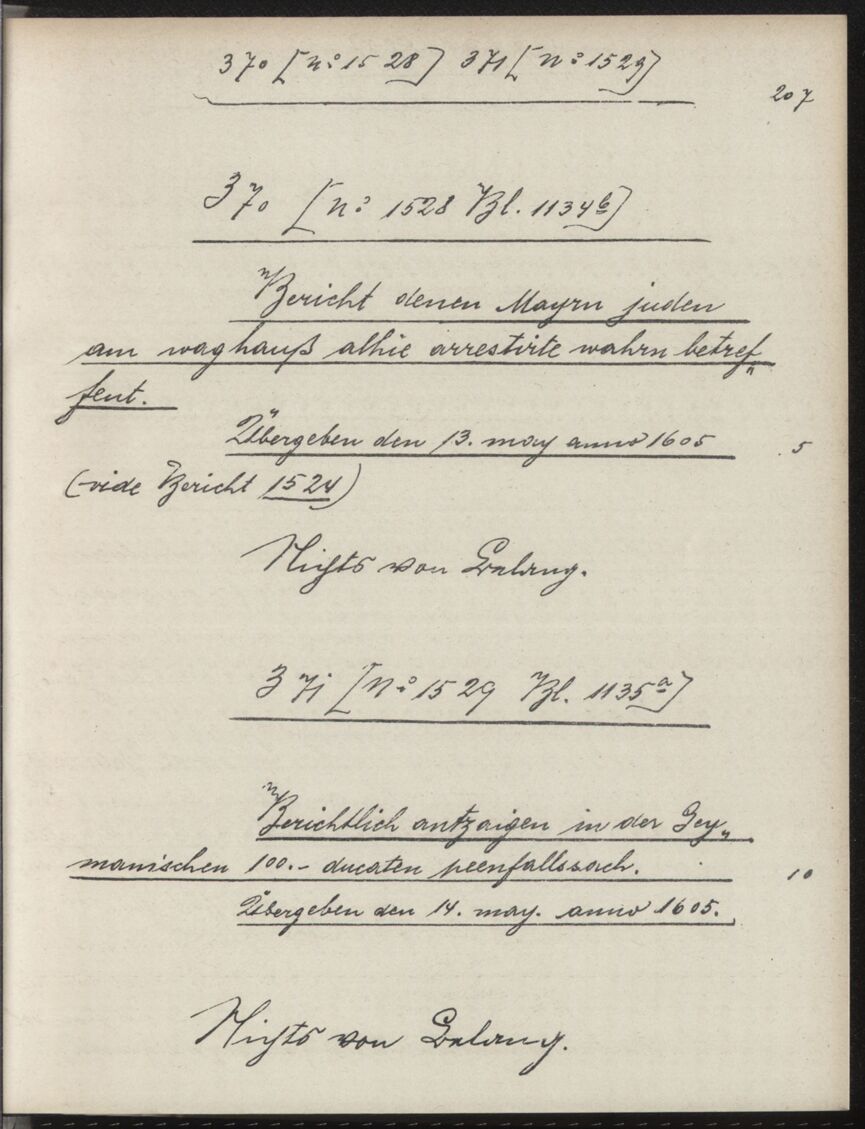 370 [Nº 1528] 371 [Nº 1529]
207
370 [Nº 1528 Bl. 1134b]
Bericht denen Mayrn juden
am waghauß alhie arrestirte wahrn betref„
fent.
Übergeben den 13. may anno 1605
5
(vide Bericht 1524)
Nichts von Belang.
371 [Nº 1529 Bl. 1135a]
Berichtlich antzaigen in der Gey„
manischen 100.- ducaten peenfallssach.
10
Übergeben den 14. may. anno 1605.
Nichts von Belang.